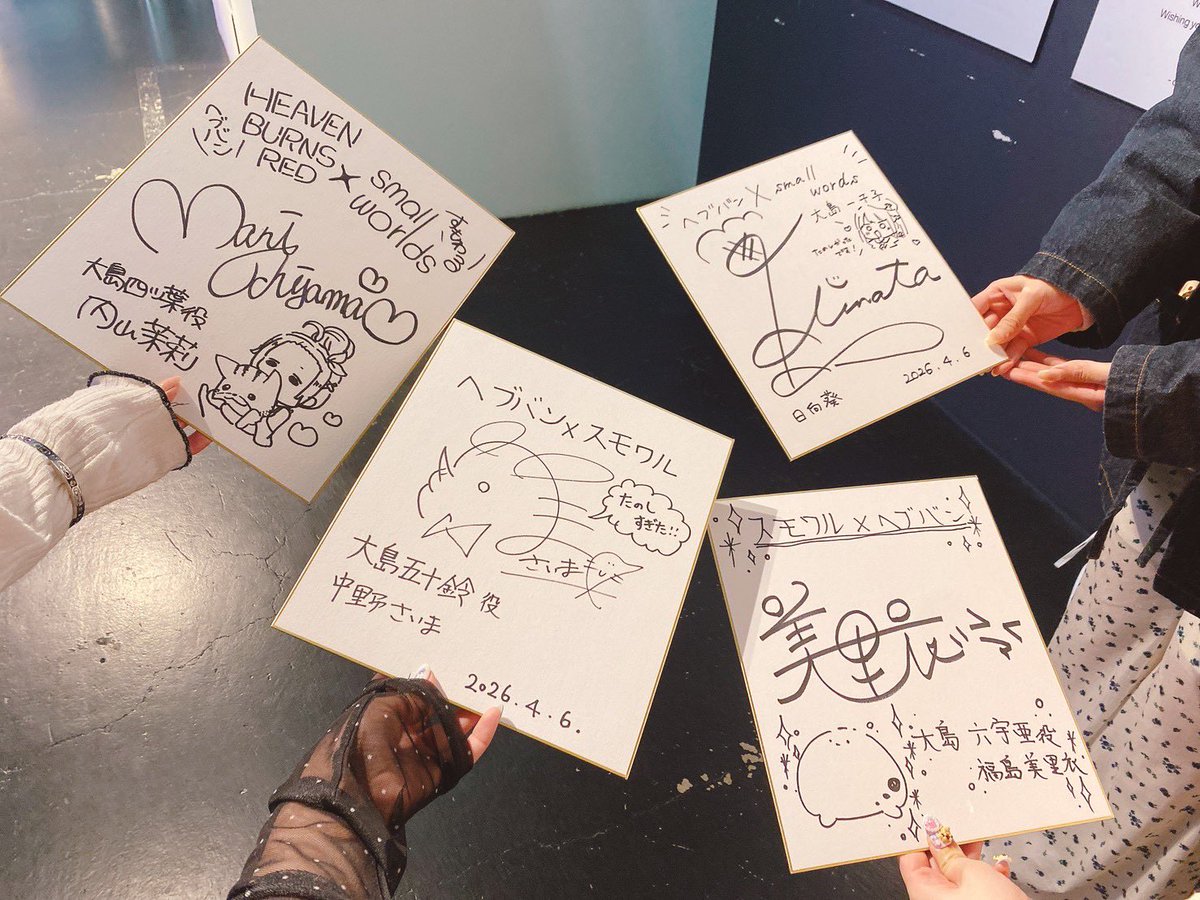 HEAVEN
BURNS
RED
×
ヘブバン
small
worlds
すもわる
Mari
Uchiyama
大島四ツ葉役
内山茉莉
ヘブバン×スモワル
たのし
すぎた!!
さいま
大島五十鈴役
中野さいま
2026.4.6.
ヘブバン×small
words
大島一千子
Hinata
2026.4.6
日向葵
スモワル×ヘブバン
美里衣
大島六宇亜役
福島美里衣
Wishing yo